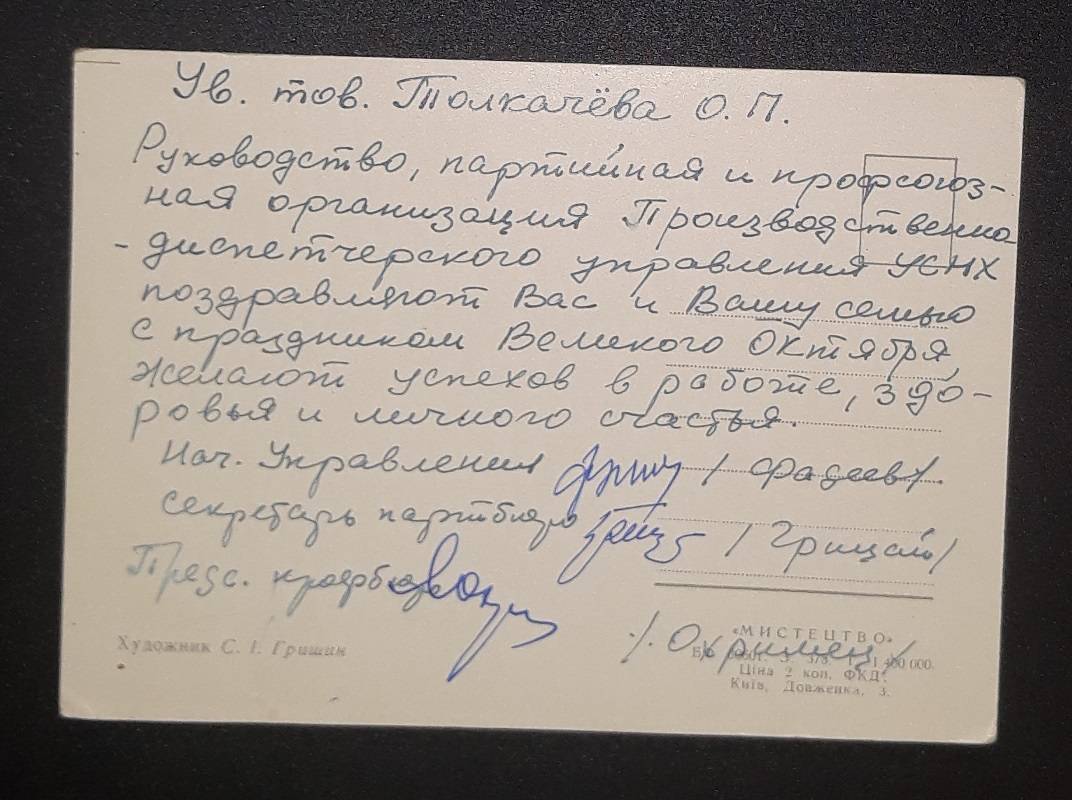 Ув. тов. Толкачёва О.П.
Руководство, партийная и профсоюз-
ная организация Производственно
- диспетчерского управления УСНХ
поздравляют Вас и Вашу семью
с праздником Великого Октября,
желают успехов в работе, здо-
ровья и личного счастья.
Нач. Управления / Фадеев /.
секретарь партбюро / Грицай /
Предс. профбюро
/. Охримец /
Художник С. І. Гришин
«МИСТЕЦТВО»
Ціна 2 коп. ФКД.
Київ, Довженка, 3.